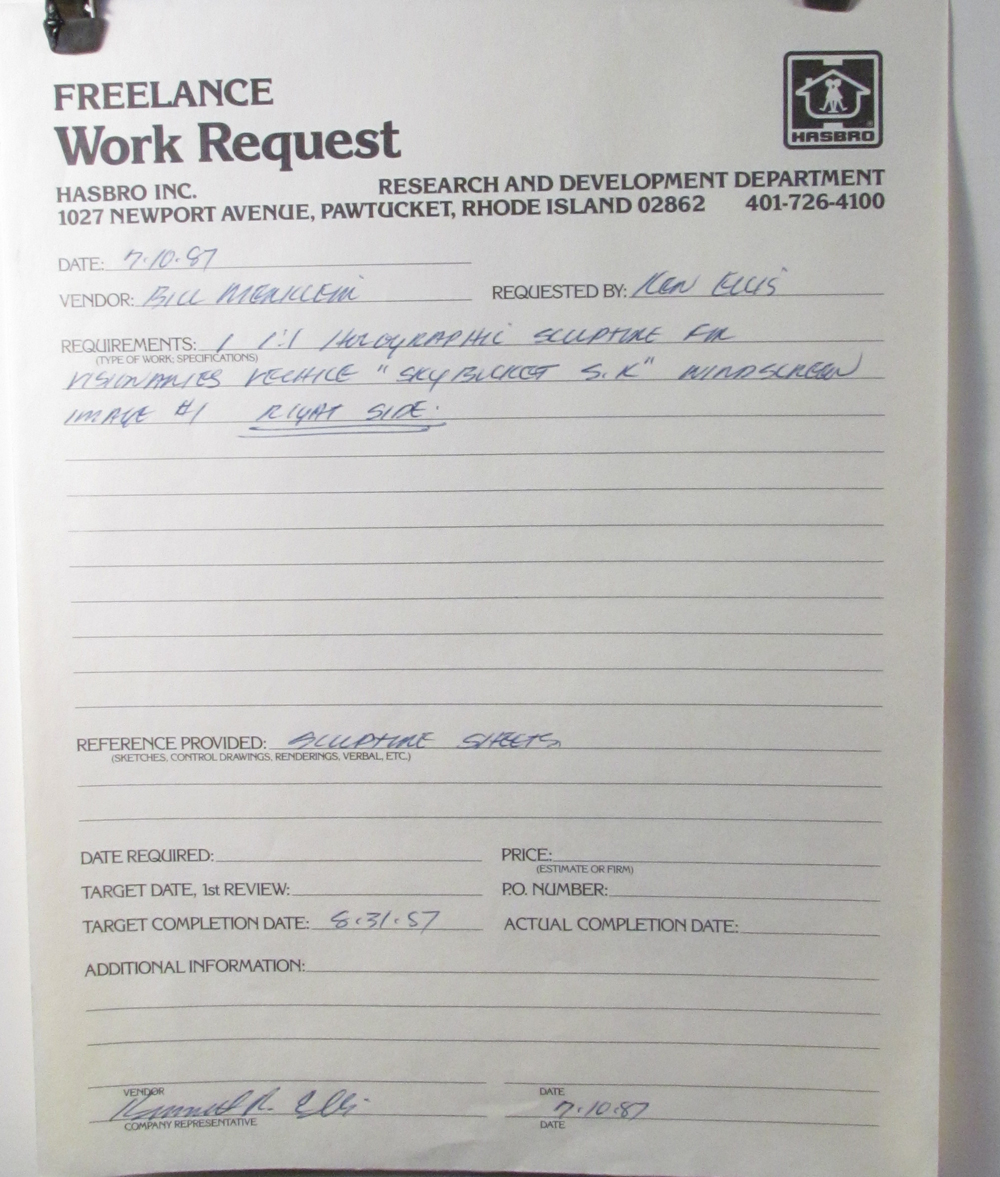 FREELANCE
Work Request
HASBRO
HASBRO INC. RESEARCH AND DEVELOPMENT DEPARTMENT
1027 NEWPORT AVENUE, PAWTUCKET, RHODE ISLAND 02862 401-726-4100
DATE: 7.10.87
VENDOR: BILL MERKLEIN REQUESTED BY: KEN ELLIS
REQUIREMENTS: 1 1:1 HOLOGRAPHIC SCULPTURE FOR
(TYPE OF WORK; SPECIFICATIONS)
VISIONARIES VECHICE "SKY BUCKET S.K" WINDSCREEN
IMAGE #1 RIGHT SIDE.
REFERENCE PROVIDED: SCULPTURE SHEETS
(SKETCHES, CONTROL DRAWINGS, RENDERINGS, VERBAL, ETC.)
DATE REQUIRED: PRICE:
(ESTIMATE OR FIRM)
TARGET DATE, 1st REVIEW: P.O. NUMBER:
TARGET COMPLETION DATE: 8.31.87 ACTUAL COMPLETION DATE:
ADDITIONAL INFORMATION:
VENDOR DATE
Kenneth R. Ellis 7.10.87
COMPANY REPRESENTATIVE DATE